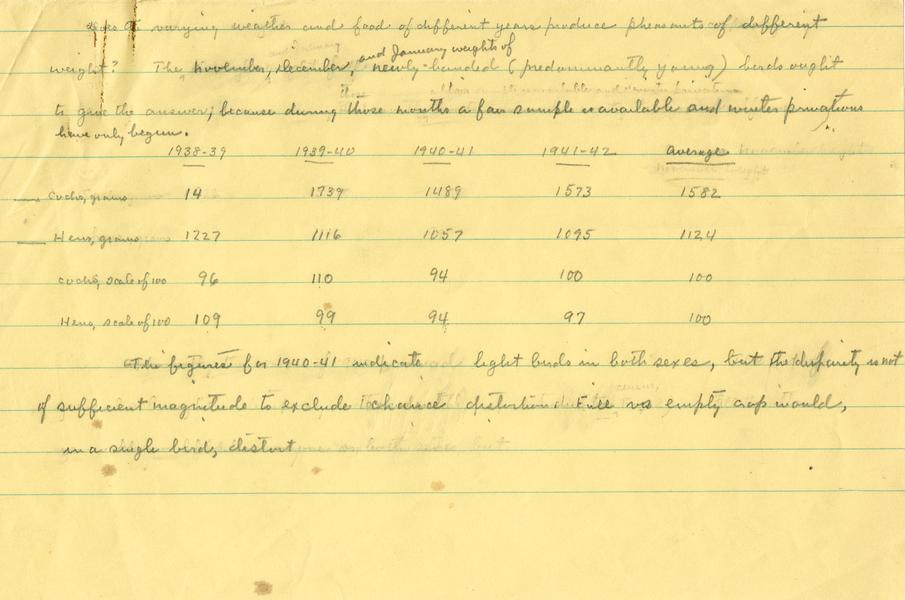 Does the varying weather and food of different years produce pheasants of different
and January weights of
weight? The November, December, newly-banded (predominantly young) birds ought
to give the answer, because during those months a fair sample is available and winter privations
have only begun.
1938-39 1939-40 1940-41 1941-42 average
Cocks, grams 14 1739 1489 1573 1582
Hens, grams 1227 1116 1057 1095 1124
Cocks, scale of 100 96 110 94 100 100
Hens, scale of 100 109 99 94 97 100
The figures for 1940-41 indicate light birds in both sexes, but the disparity is not
of sufficient magnitude to exclude chance distortion. Full vs empty crop would,
in a single bird, distort